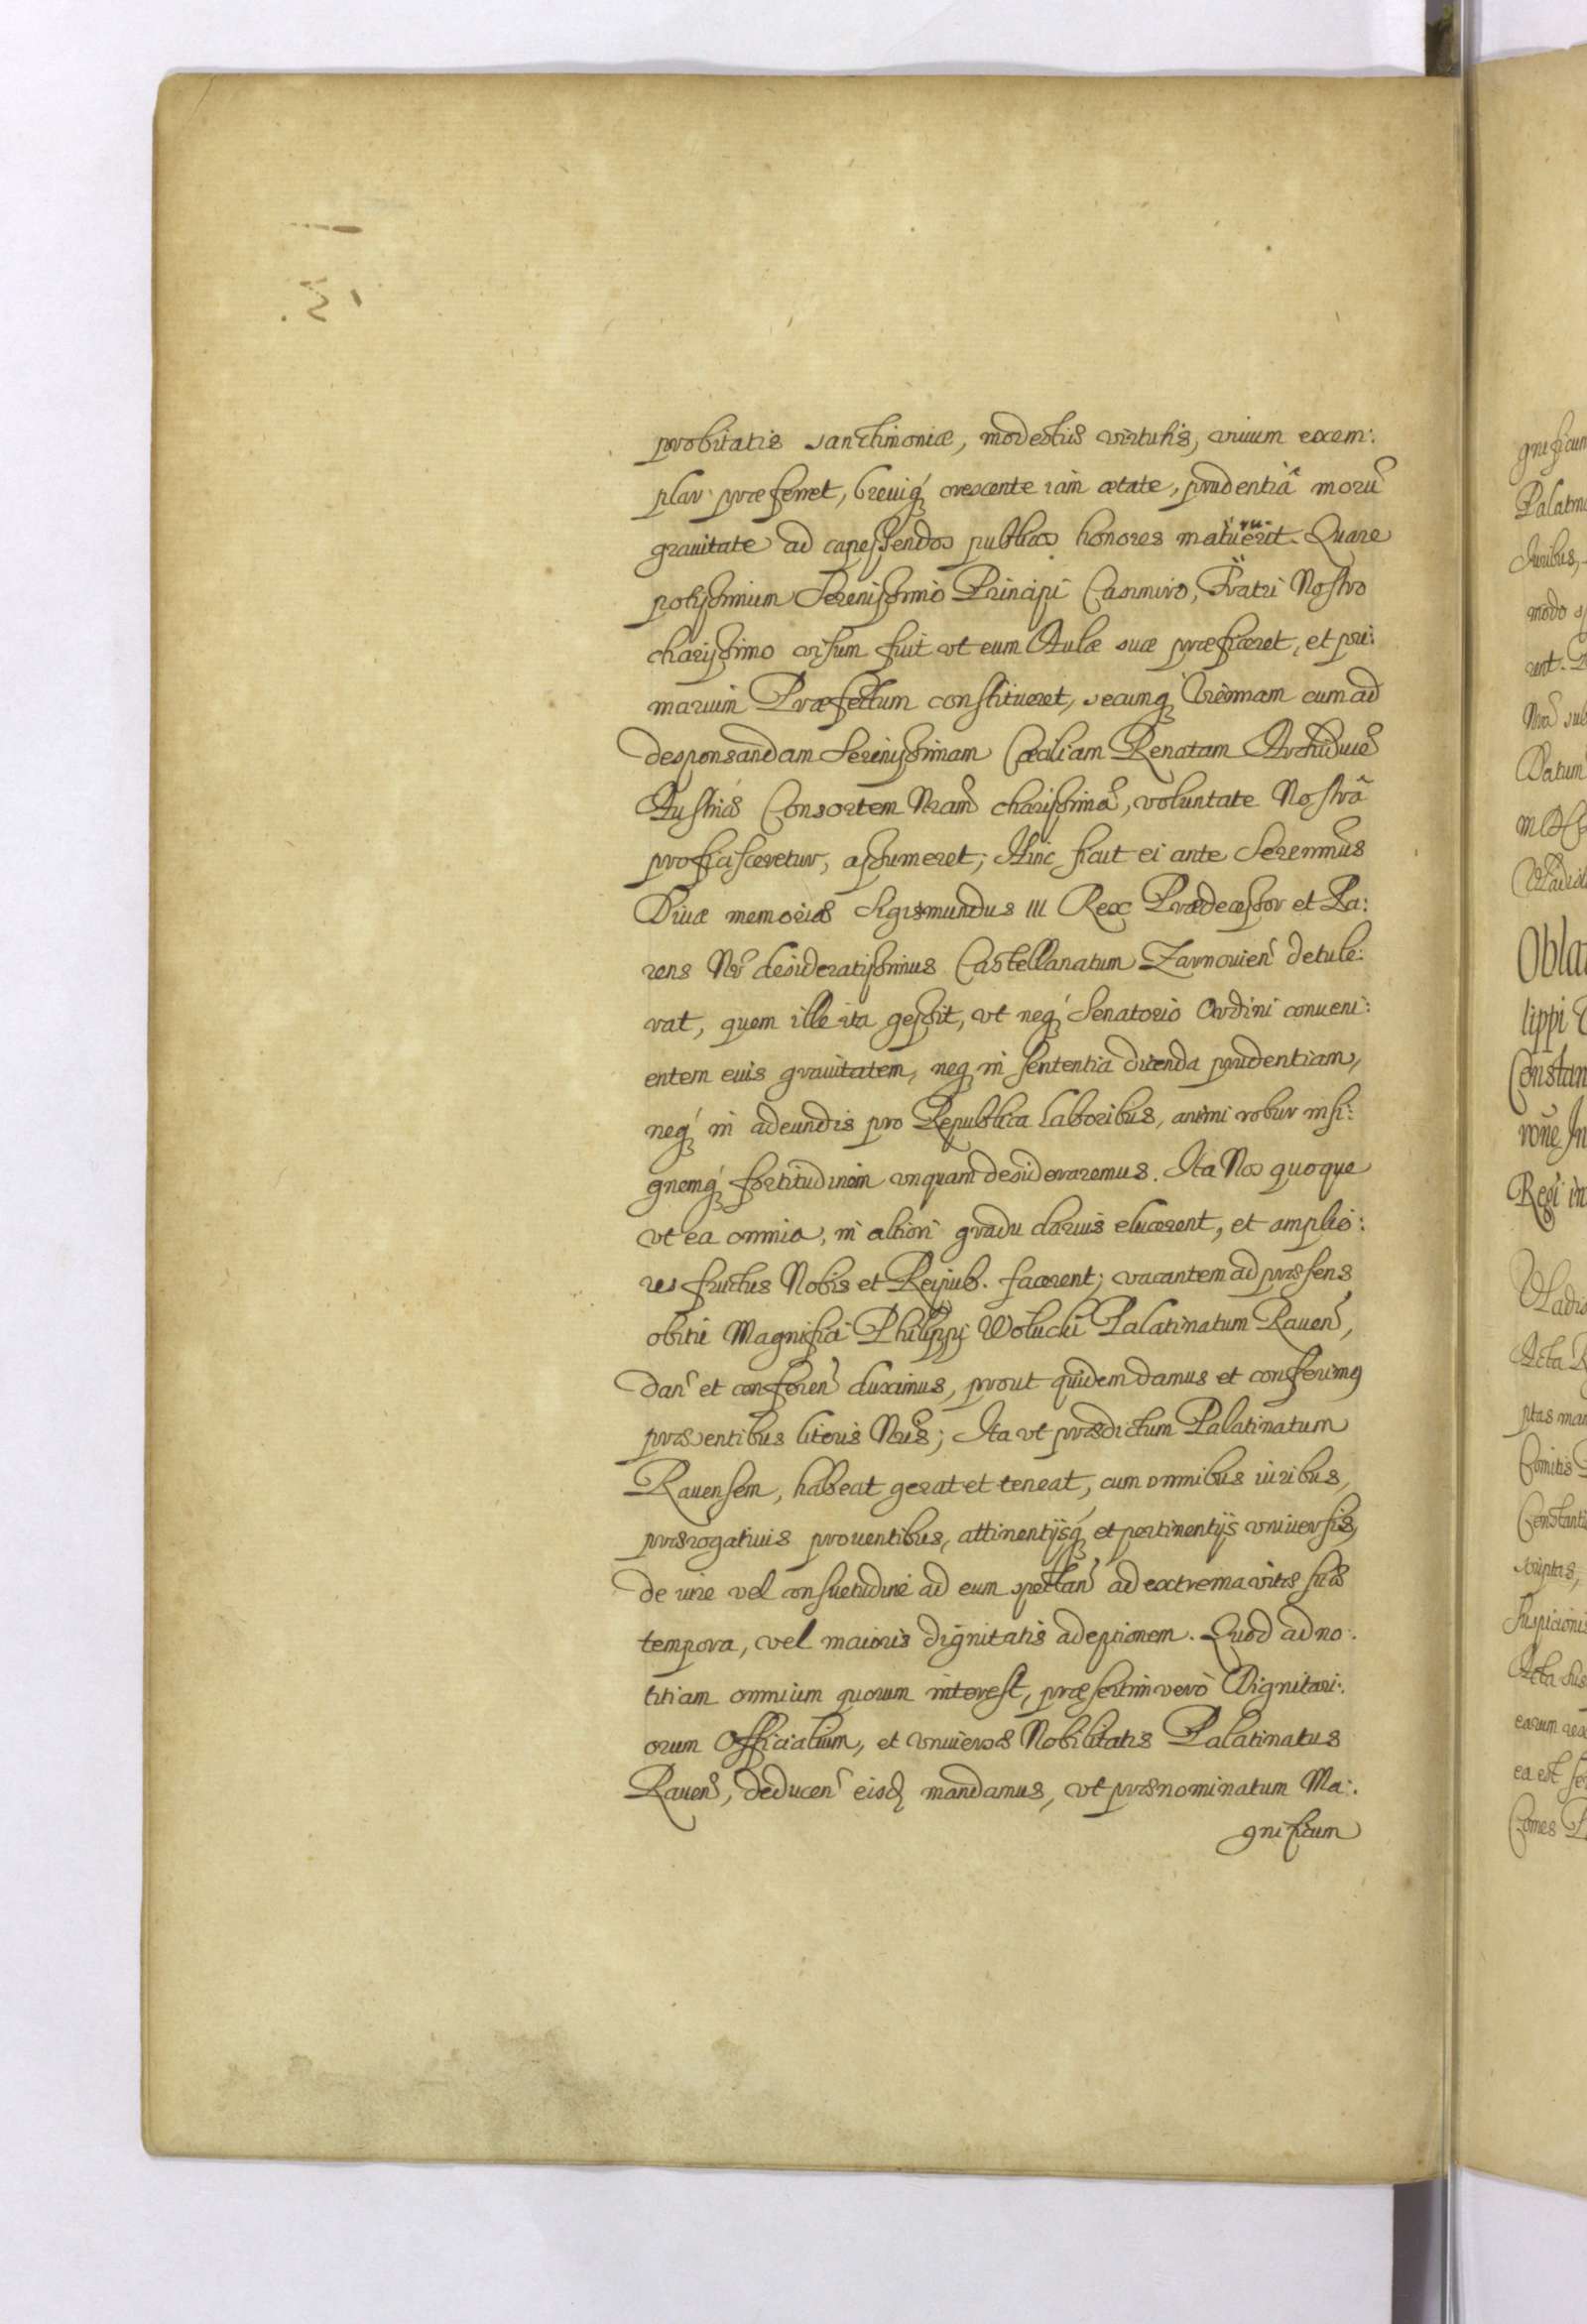 probitatis sanctimoniæ, modestiæ virtutis, vivum exem:
plar præferret, breuiq́ crescente iam ætate, prudentiâ morũ
grauitate ad capessendos publicos honores maturuerit. Quare
potissimum Serenissimo Principi Casimiro, Fratri Nostro
charissimo visum fuit vt eum Aulæ suæ præficeret, et pri:
marium Præfectum constitueret, secumq́ Viennam cum ad
desponsandam Serenissimam Cæciliam Renatam Archiducẽ
Austriæ Consortem Nram charissimã, voluntate Nostrâ
proficisceretur, assumeret; Hinc sicut ei ante Serenmus
Diuæ memoriæ Sigismundus III Rex Prædecessor et Pa:
rens Nr desideratissimus Castellanatum Zarnouien detule:
rat, quem ille ita gessit, vt neq́ Senatorio Ordini conueni:
entem euis grauitatem, neq́ in sententia dicenda prudentiam,
neq́ in adeundis pro Republica laboribus, animi robur insi:
gnemq́ fortitudinem vnquam desideraremus. Ita Nos quoque
vt ea omnia, in altiori gradu clarius elucerent, et amplio:
res fructus Nobis et Reipub. facerent; vacantem ad præsens
obitu Magnifici Philippi Wolucki Palatinatum Rauen,
dan et conferen duximus, prout quidem damus et conferimꝰ
præsentibus literis Nris; Ita vt prædictum Palatinatum
Rauensem, habeat gerat et teneat, cum omnibus iuribus,
prærogatiuis prouentibus, attinentijsq́ et pertinentijs vniuersis,
de iure vel consuetudine ad eum spectan ad extrema vitæ suæ
tempora, vel maioris dignitatis adeptionem. Quod ad no:
titiam omnium quorum interest, præsertim verò Dignitari:
orum Officialium, et vniuersæ Nobilitatis Palatinatus
Rauen, deducen eisd mandamus, vt prænominatum Ma:
gnificum